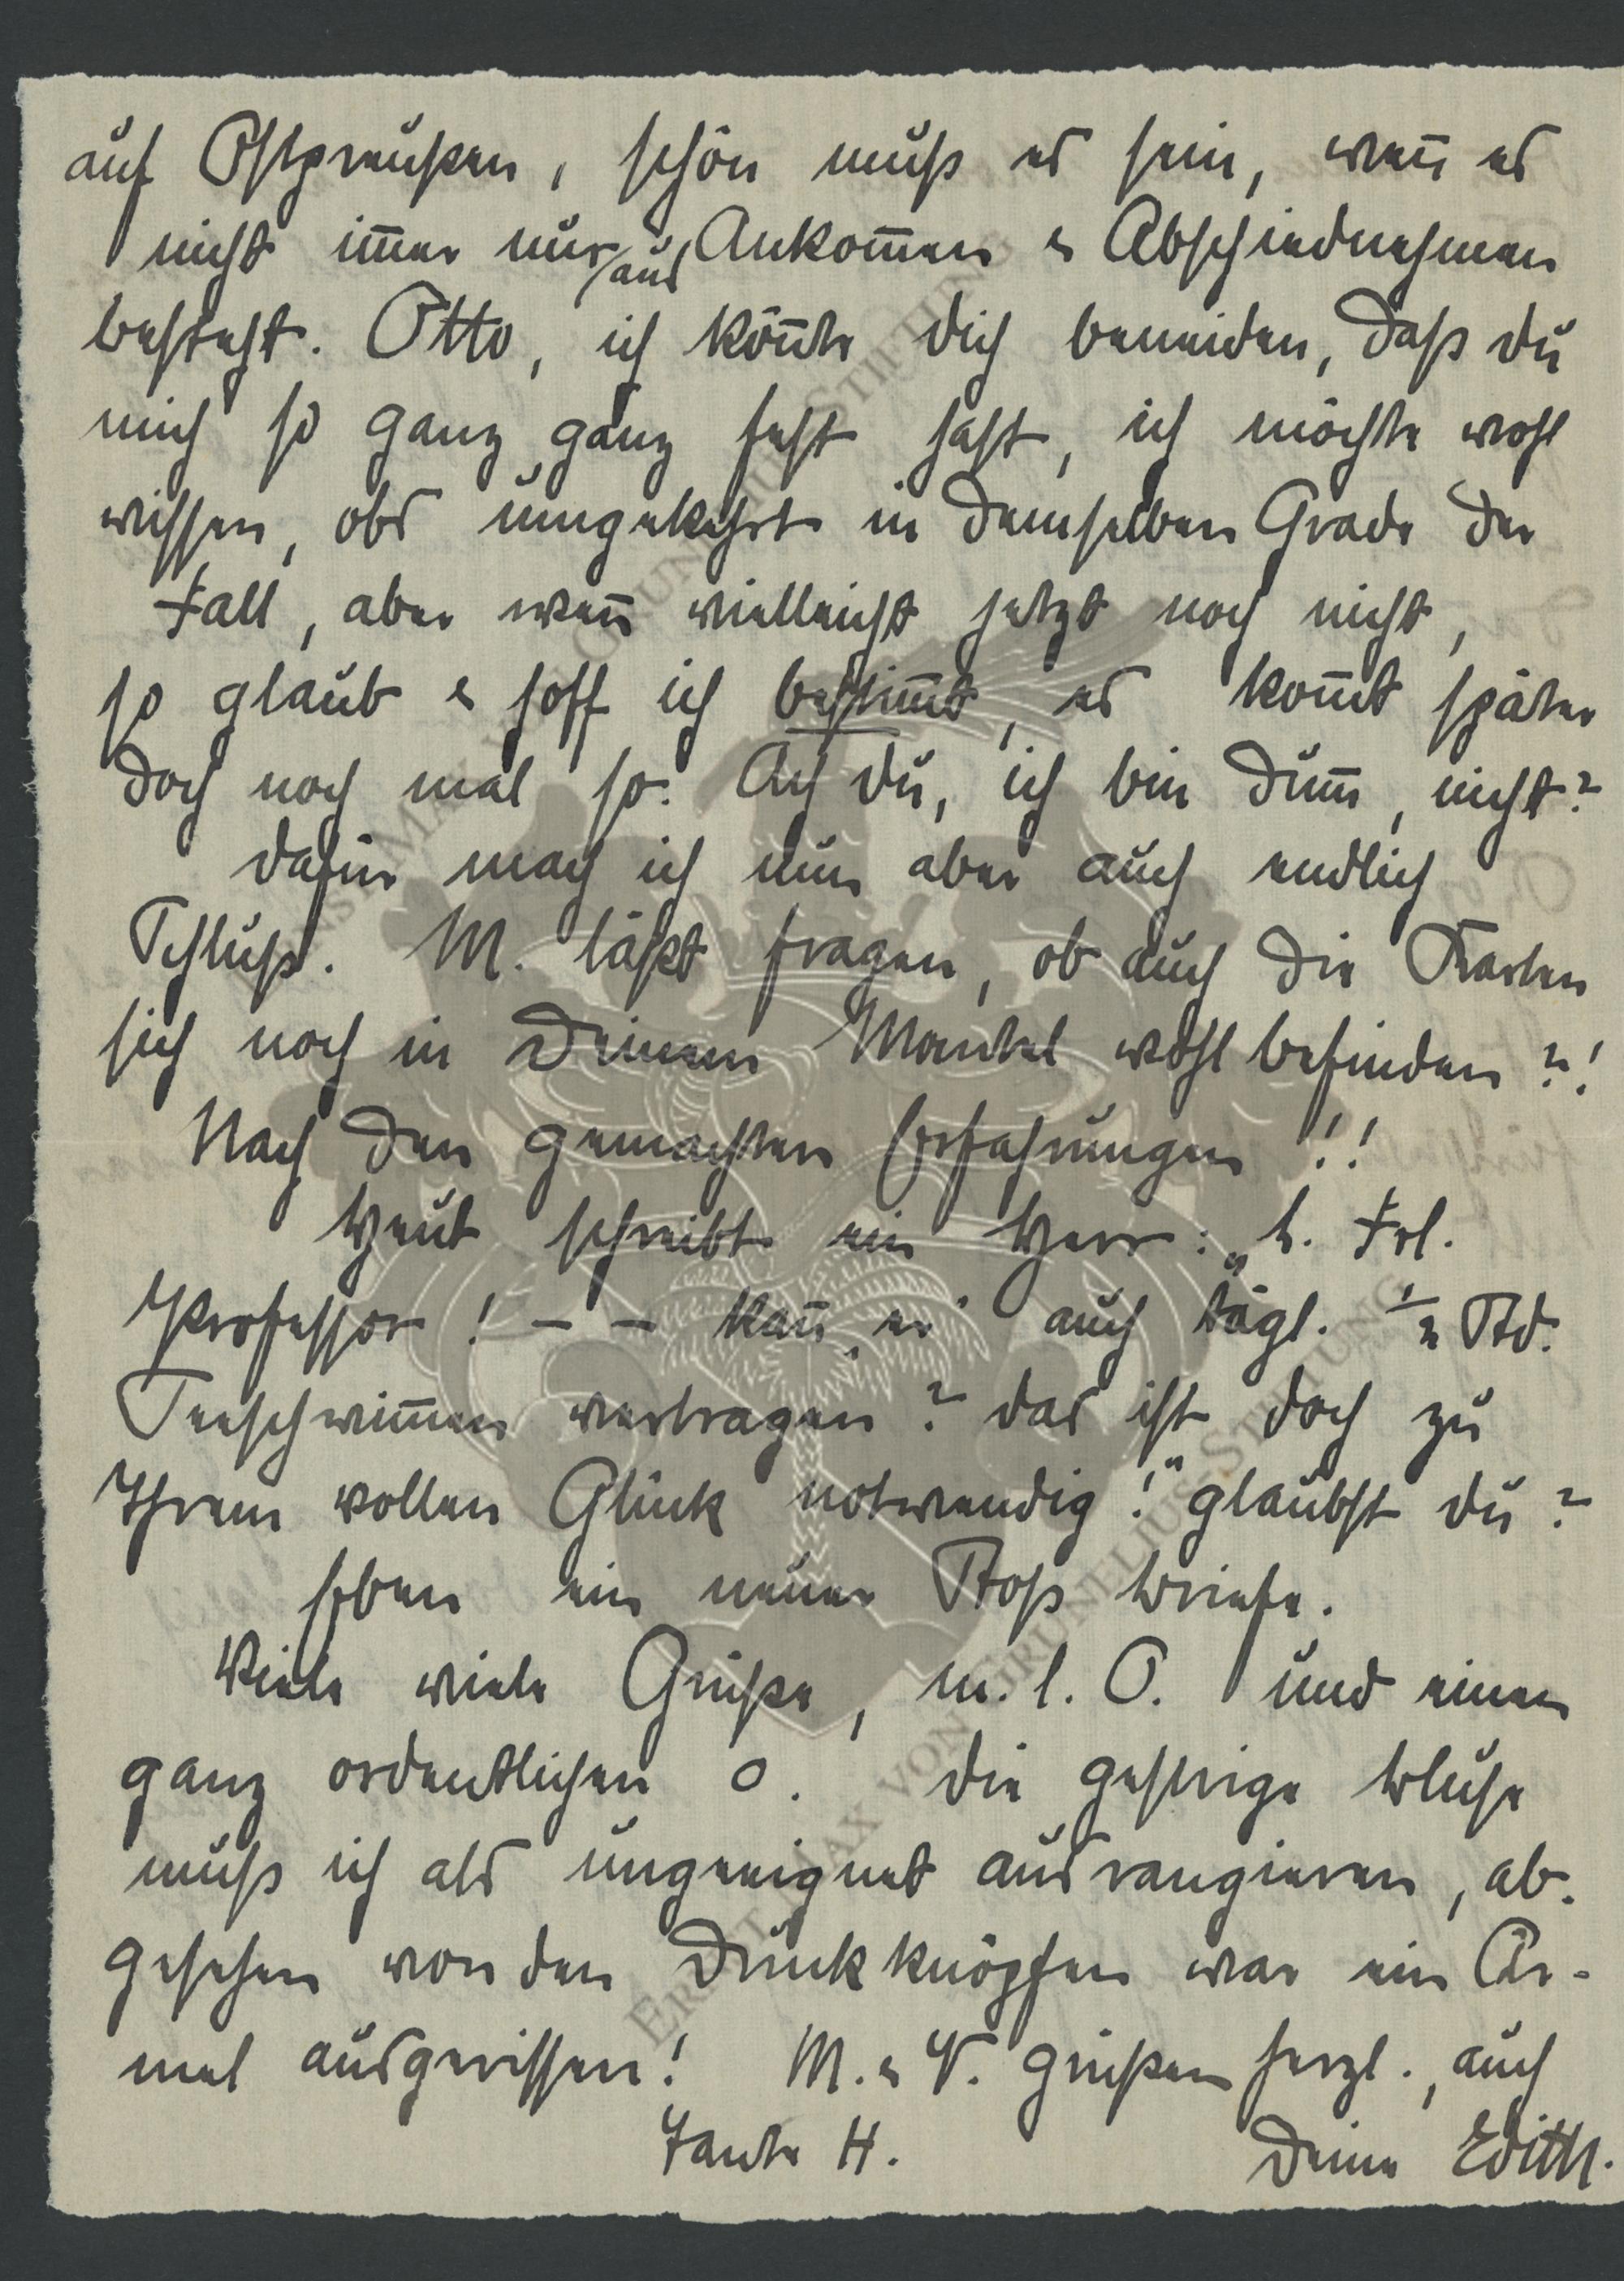 auf Ostpreußen, schön muß es sein, weñ es
nicht im̄er nur aus Ankom̄en & Abschiednehmen
besteht. Otto, ich kön̄te dich beneiden, daß du
mich so ganz ganz fest hast, ich möchte wohl
wissen, obs umgekehrt in demselben Grade der
Fall, aber wen̄ vielleicht jetzt noch nicht,
so glaub & hoff ich bestim̄t, es kom̄t später
doch noch mal so. Ach du, ich bin dum̄, nicht?
dafür mach ich nun aber auch endlich
Schluß. M. läßt fragen, ob auch die Karten
sich noch in Deinem Mantel wohl befinden?!
Nach den gemachten Erfahrungen!!
Heut schreibt ein Herr: „h. Frl.
Professor! – – kan̄ „er“ auch tägl. ½ Std.
Seeschwim̄en vertragen? das ist doch zu
Ihrem vollen Glück notwendig!“ glaubst du?
Eben ein neuer Stoß Briefe.
Viele viele Grüße, m. l. O. und einen
ganz ordentlichen o. die gestrige Bluse
muß ich als ungeeignet ausrangieren, ab-
gesehen von den Druckknöpfen war ein Är-
mel ausgerissen! M. & V. grüßen herzl., auch
Tante H. Deine Edith.
ERNST MAX VON GRUNELIUS-STIFTUNG
ERNST MAX VON GRUNELIUS-STIFTUNG